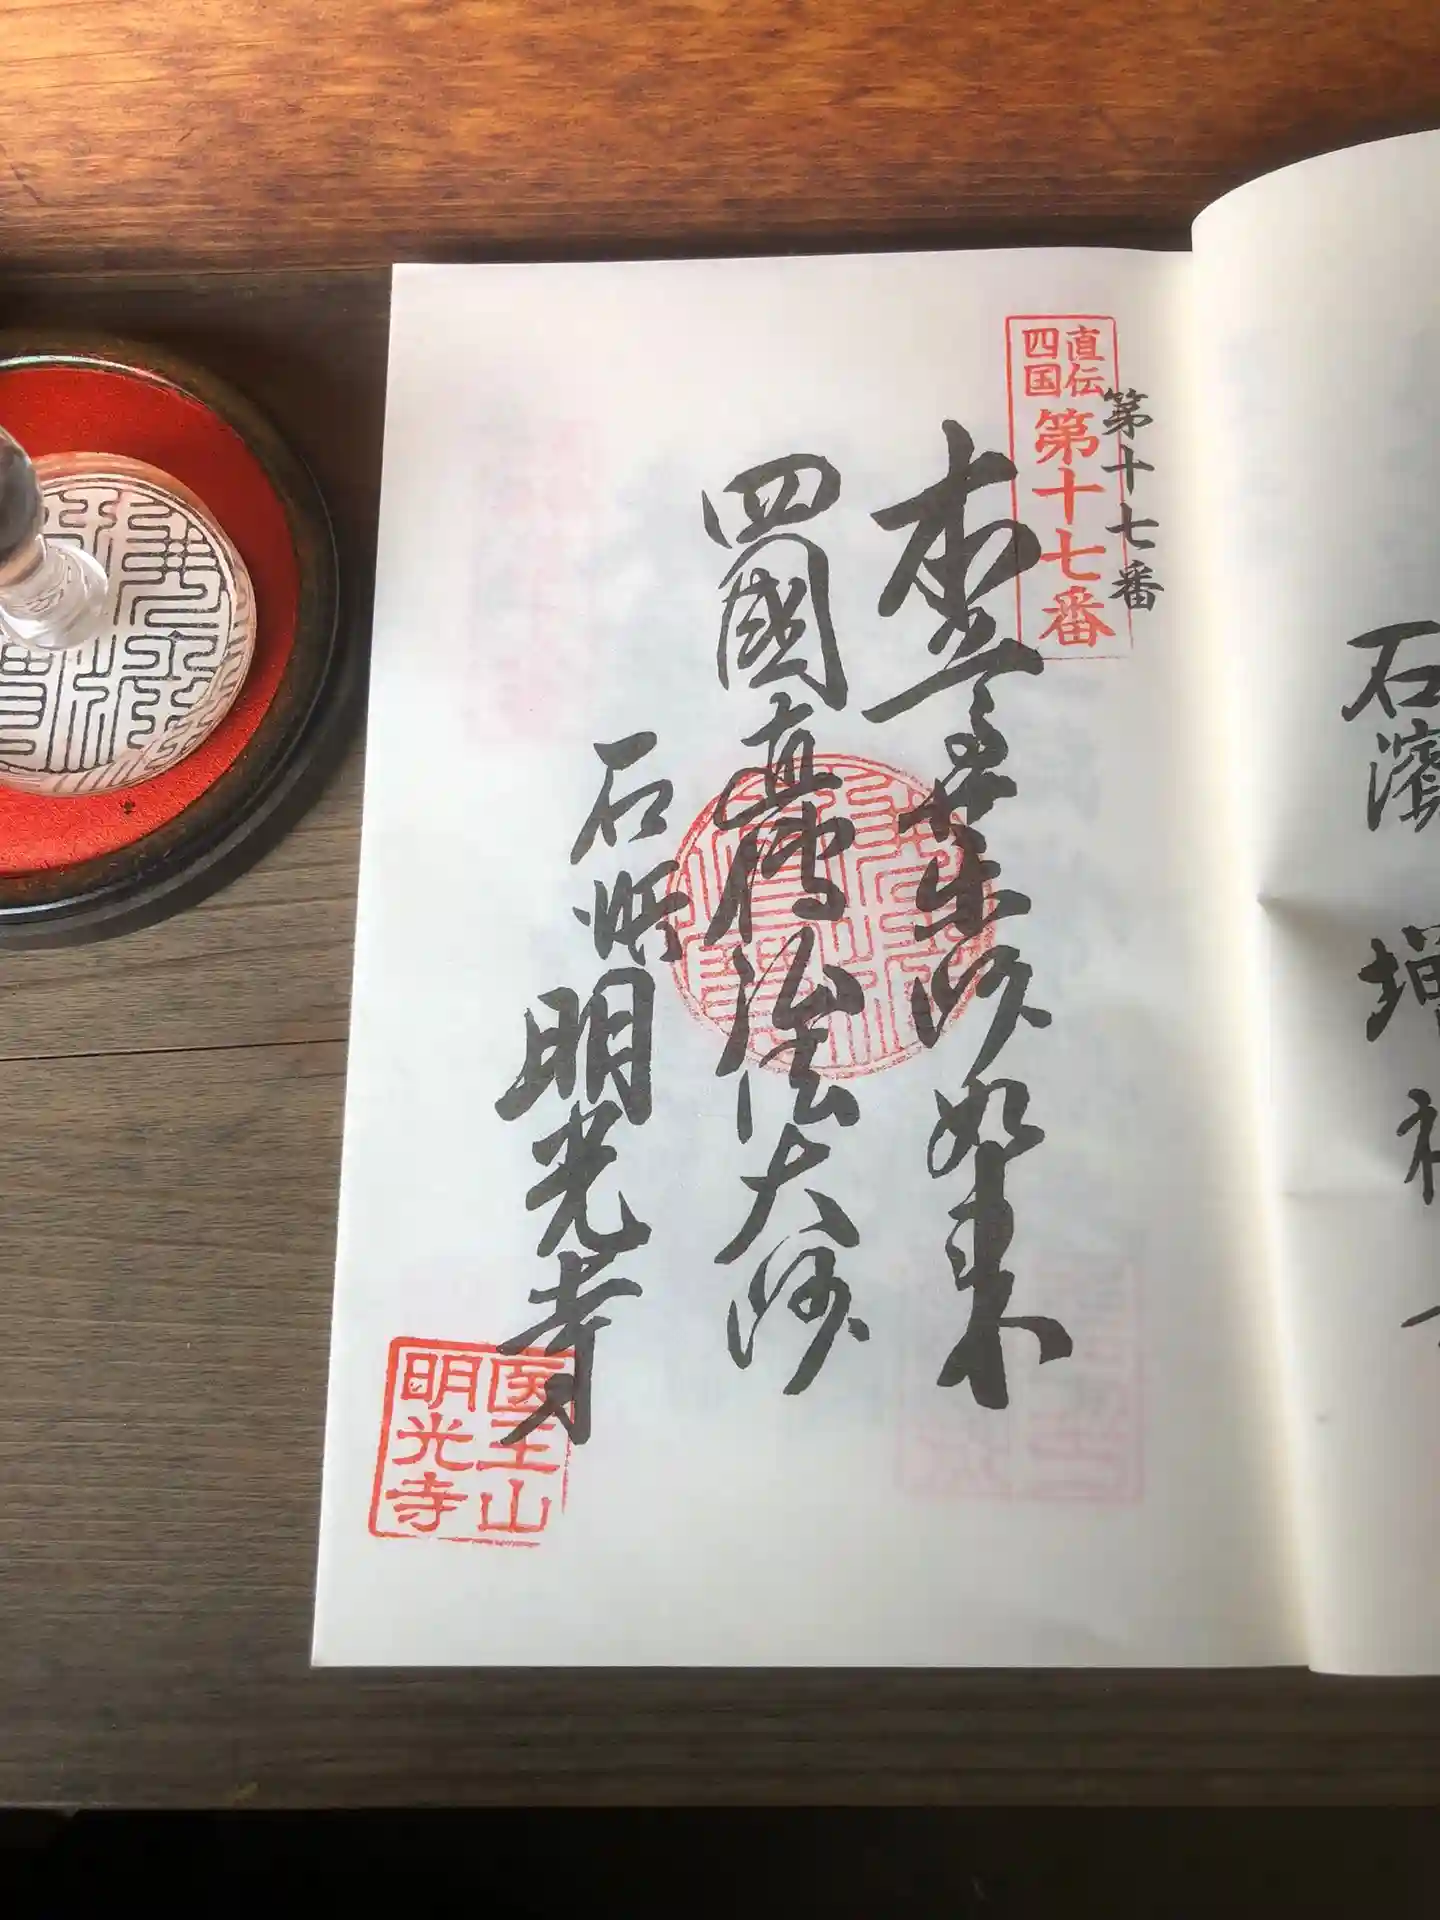 石濱
増
第十七番
直伝
四国
第十七番
本尊薬師如来
四國直傳弘法大師
石浜 明光寺
医王山
明光寺